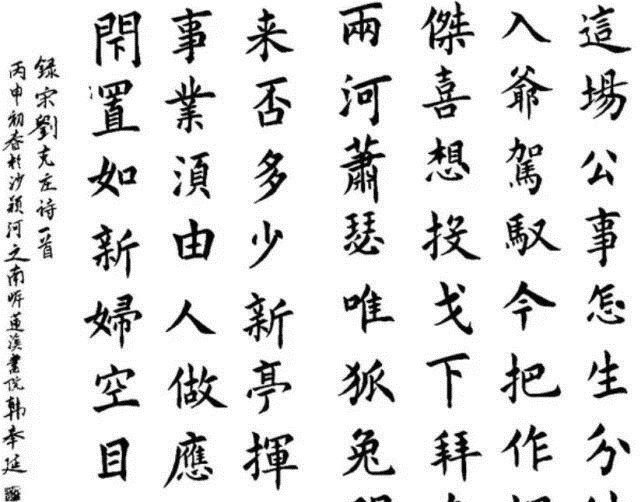 這場公事怎生分
入爺駕馭今把作
傑喜想投戈下拜
兩河蕭瑟唯狐兔
来否多少新亭揮
事業湏由人做應
閇置如新婦空目
録宋劉克庄诗一首
丙申初春於沙颍河之南莲溪書院韩奉延